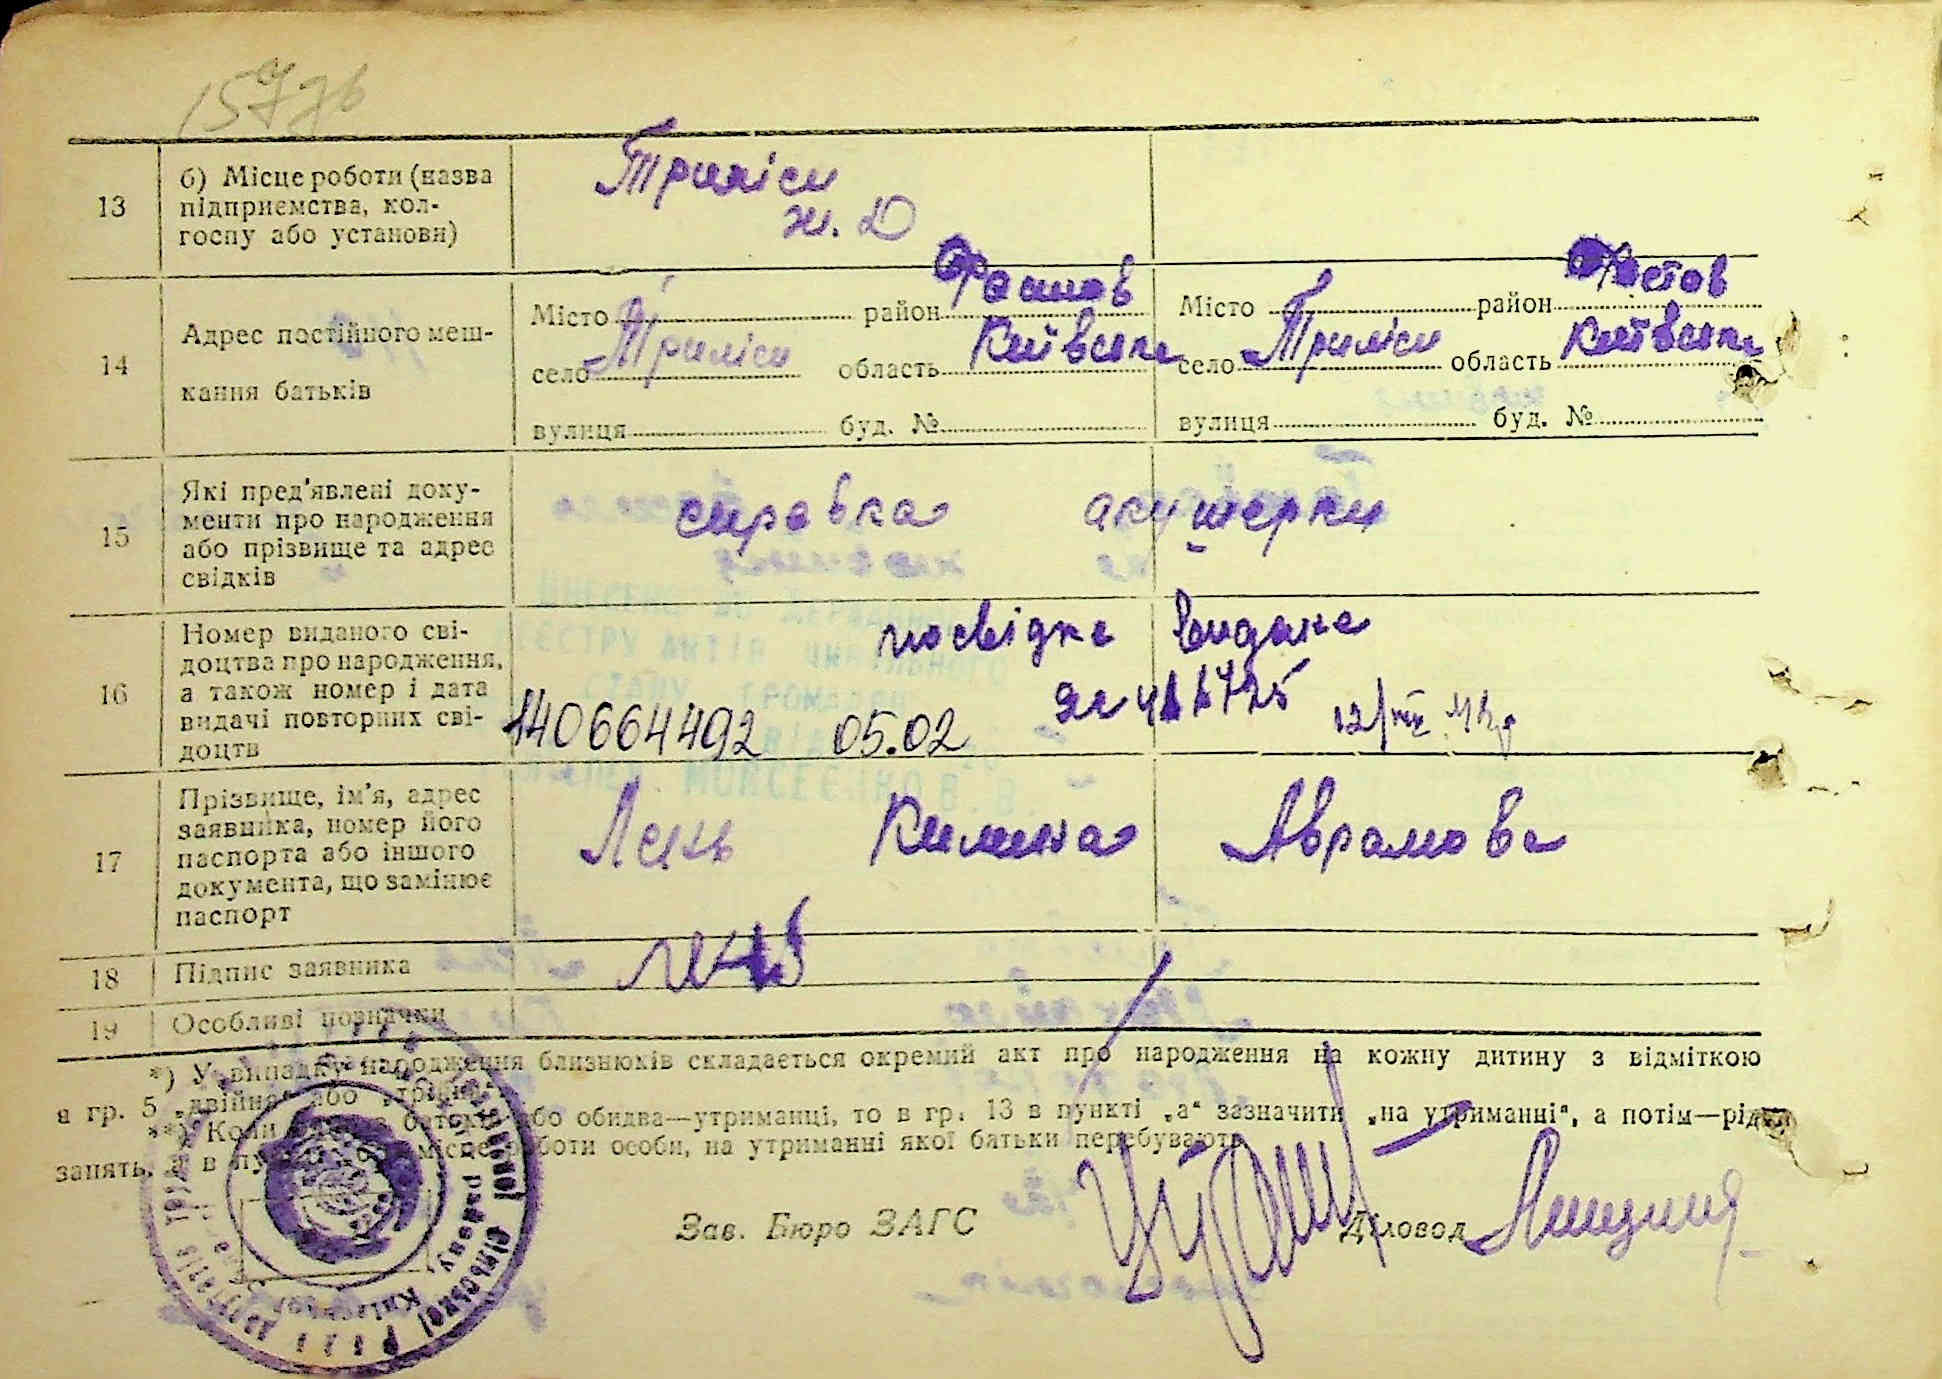 13
б) Місце роботи (назва
підприємства, кол-
госпу або установи)
Триліси
ж. Д
14
Адрес постійного меш-
кання батьків
Місто район Фастов
село Триліси область Київська
вулиця буд. №
Місто район Фастов
село Триліси область Київська
вулиця буд. №
15
Які пред'явлені доку-
менти про народження
або прізвище та адрес
свідків
справка акушерки
16
Номер виданого сві-
доцтва про народження,
а також номер і дата
видачі повторних сві-
доцтв
посвідка видана
140664492 05.02
17
Прізвище, ім'я, адрес
заявника, номер його
паспорта або іншого
документа, що замінює
паспорт
Лень Килина Аврамова
18
Підпис заявника
19
Особливі позначки
*) У випадку народження близнюків складається окремий акт про народження на кожну дитину з відміткою
в гр. 5 „двійня" або „трійня".
**) Коли батьків або обидва—утриманці, то в гр. 13 в пункті „а" зазначити „на утриманні", а потім—рід
занять, а в пункті місце роботи особи, на утриманні якої батьки перебувають.
Зав. Бюро ЗАГС
Діловод